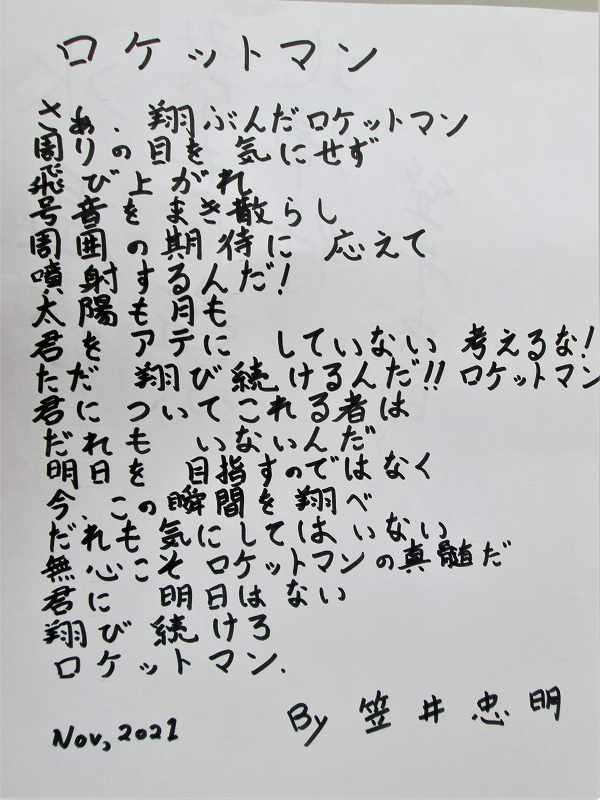 ロケットマン
さあ、翔ぶんだロケットマン
周りの目を 気にせず
飛び上がれ
号音をまき散らし
周囲の期待に 応えて
噴射するんだ!
太陽も月も
君をアテに していない 考えるな!
ただ 翔び続けるんだ!! ロケットマン
君についてこれる者は
だれも いないんだ
明日を 目指すのではなく
今、この瞬間を翔べ
だれも気にしてはいない
無心こそロケットマンの真髄だ
君に 明日はない
翔び続けろ
ロケットマン.
Nov, 2021
By 笠井忠明